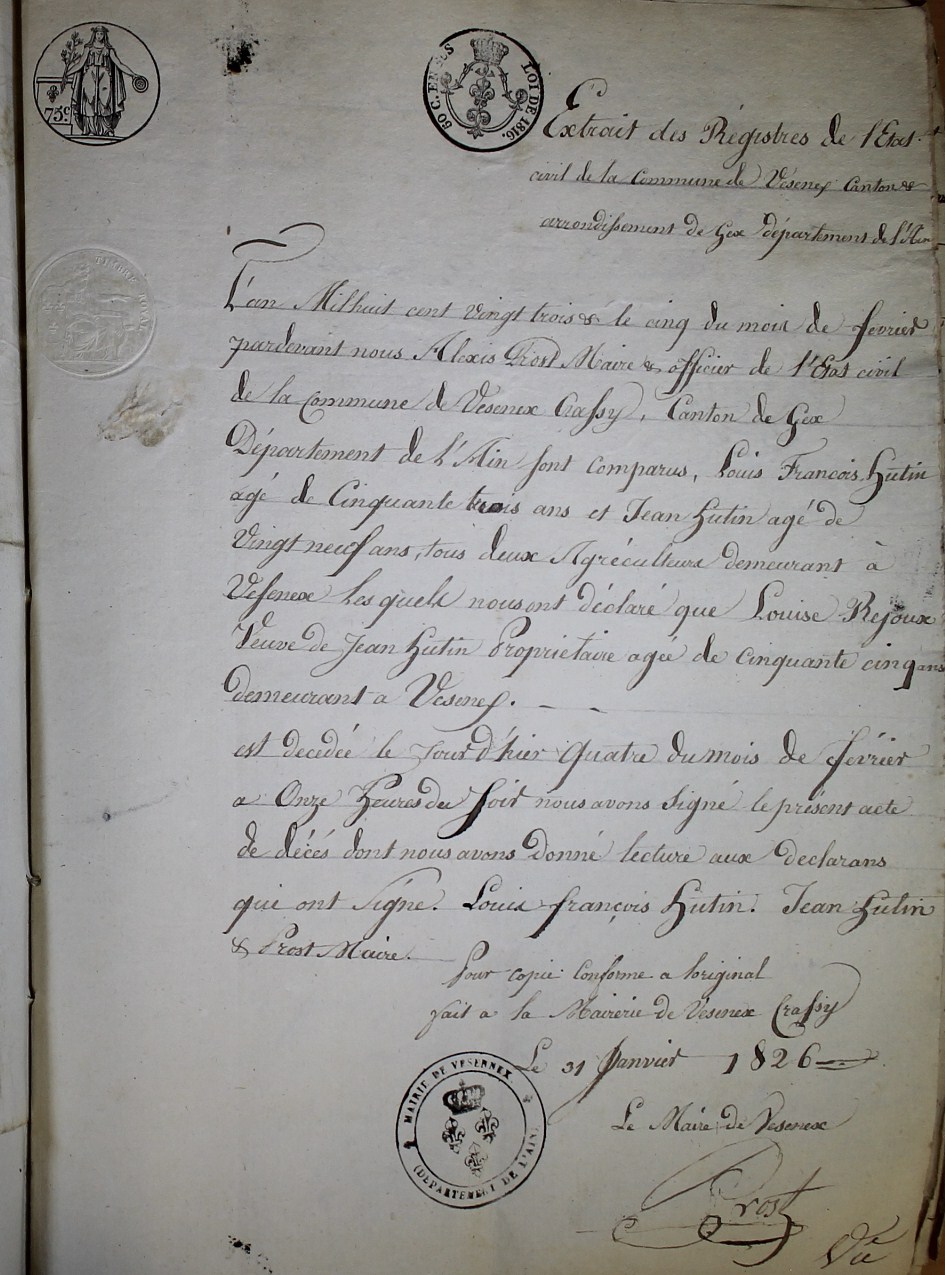 75c
50 C. EN SUS
LOI DE 1816.
TIMBRE ROYAL
Extrait des Régistres de l'Etat
civil de la Commune de Vésenex Canton &
arrondissement de Gex département de l'Ain
L'an Milhuit cent vingt trois & le cinq du mois de février
pardevant nous Alexis Prost Maire & officier de l'Etat civil
de la Commune de Vesenex Crassy, Canton de Gex
Département de l'Ain sont comparus, Louis François Hutin
agé de Cinquante trois ans et Jean Hutin agé de
Vingt neuf ans, tous deux Agréculteurs demeurant à
Vesenex Lesquels nous ont déclaré que Louise Rejoux
Veuve de Jean Hutin Propriétaire agée de cinquante cinq ans
demeurant a Vesenex. — —
est decedée le Jour d'hier Quatre du mois de février
a Onze Heures du Soir nous avons Signé le présent acte
de décés dont nous avons Donné lecture aux declarans
qui ont Signé. Louis françois Hutin. Jean Hutin
& Prost Maire.
Pour copie Conforme a l'original
fait a la Mairerie de Vésenex Crassy
Le 31 Janvier 1826
MAIRIE DE VESENNEX
(DÉPARTEMENT DE L'AIN)
Le Maire de Vesenex
Prost
Vu